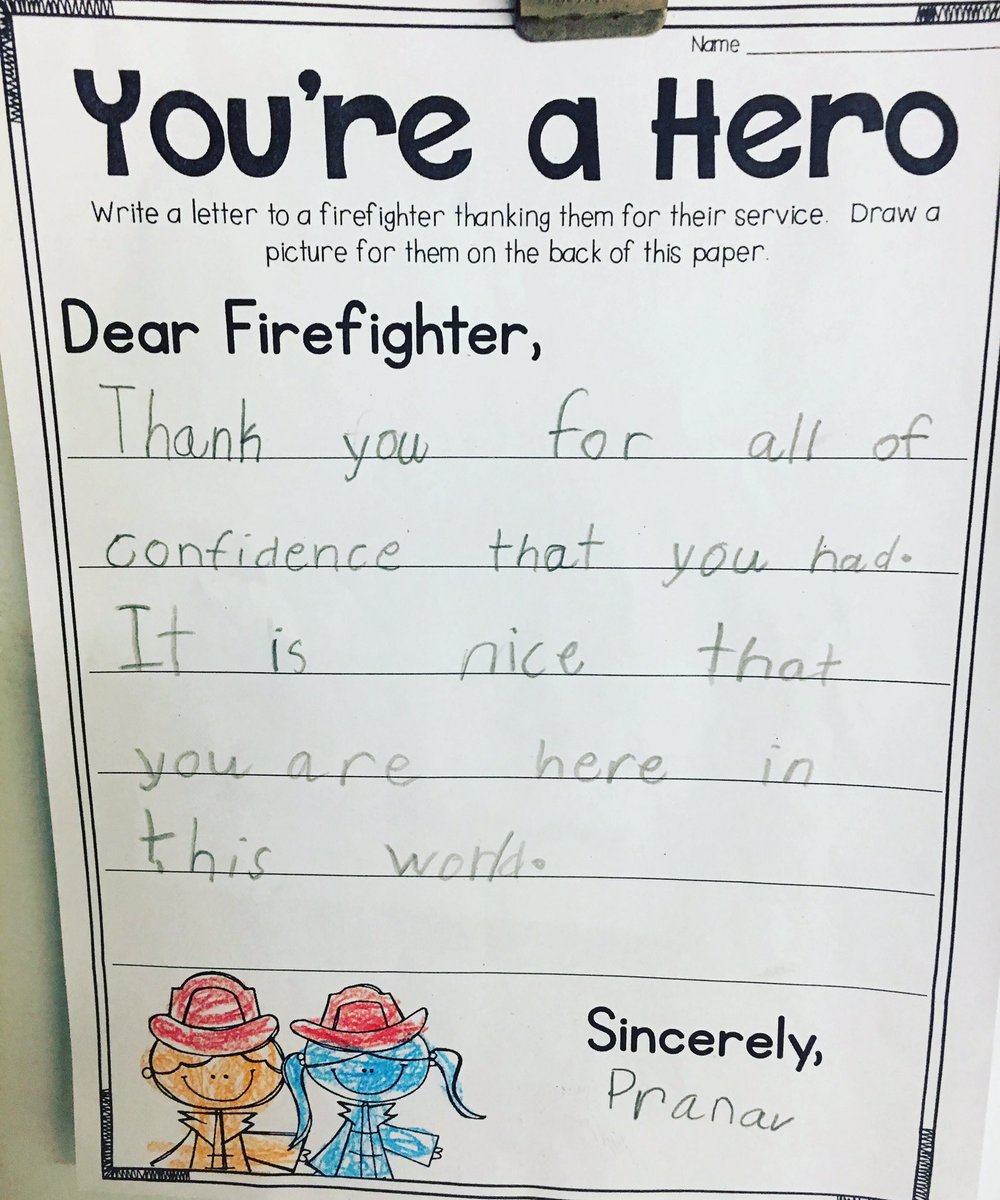 Name
You're a Hero
Write a letter to a firefighter thanking them for their service. Draw a
picture for them on the back of this paper.
Dear Firefighter,
Thank you for all of
confidence that you had.
It is nice that
you are here in
this world.
Sincerely,
Pranav